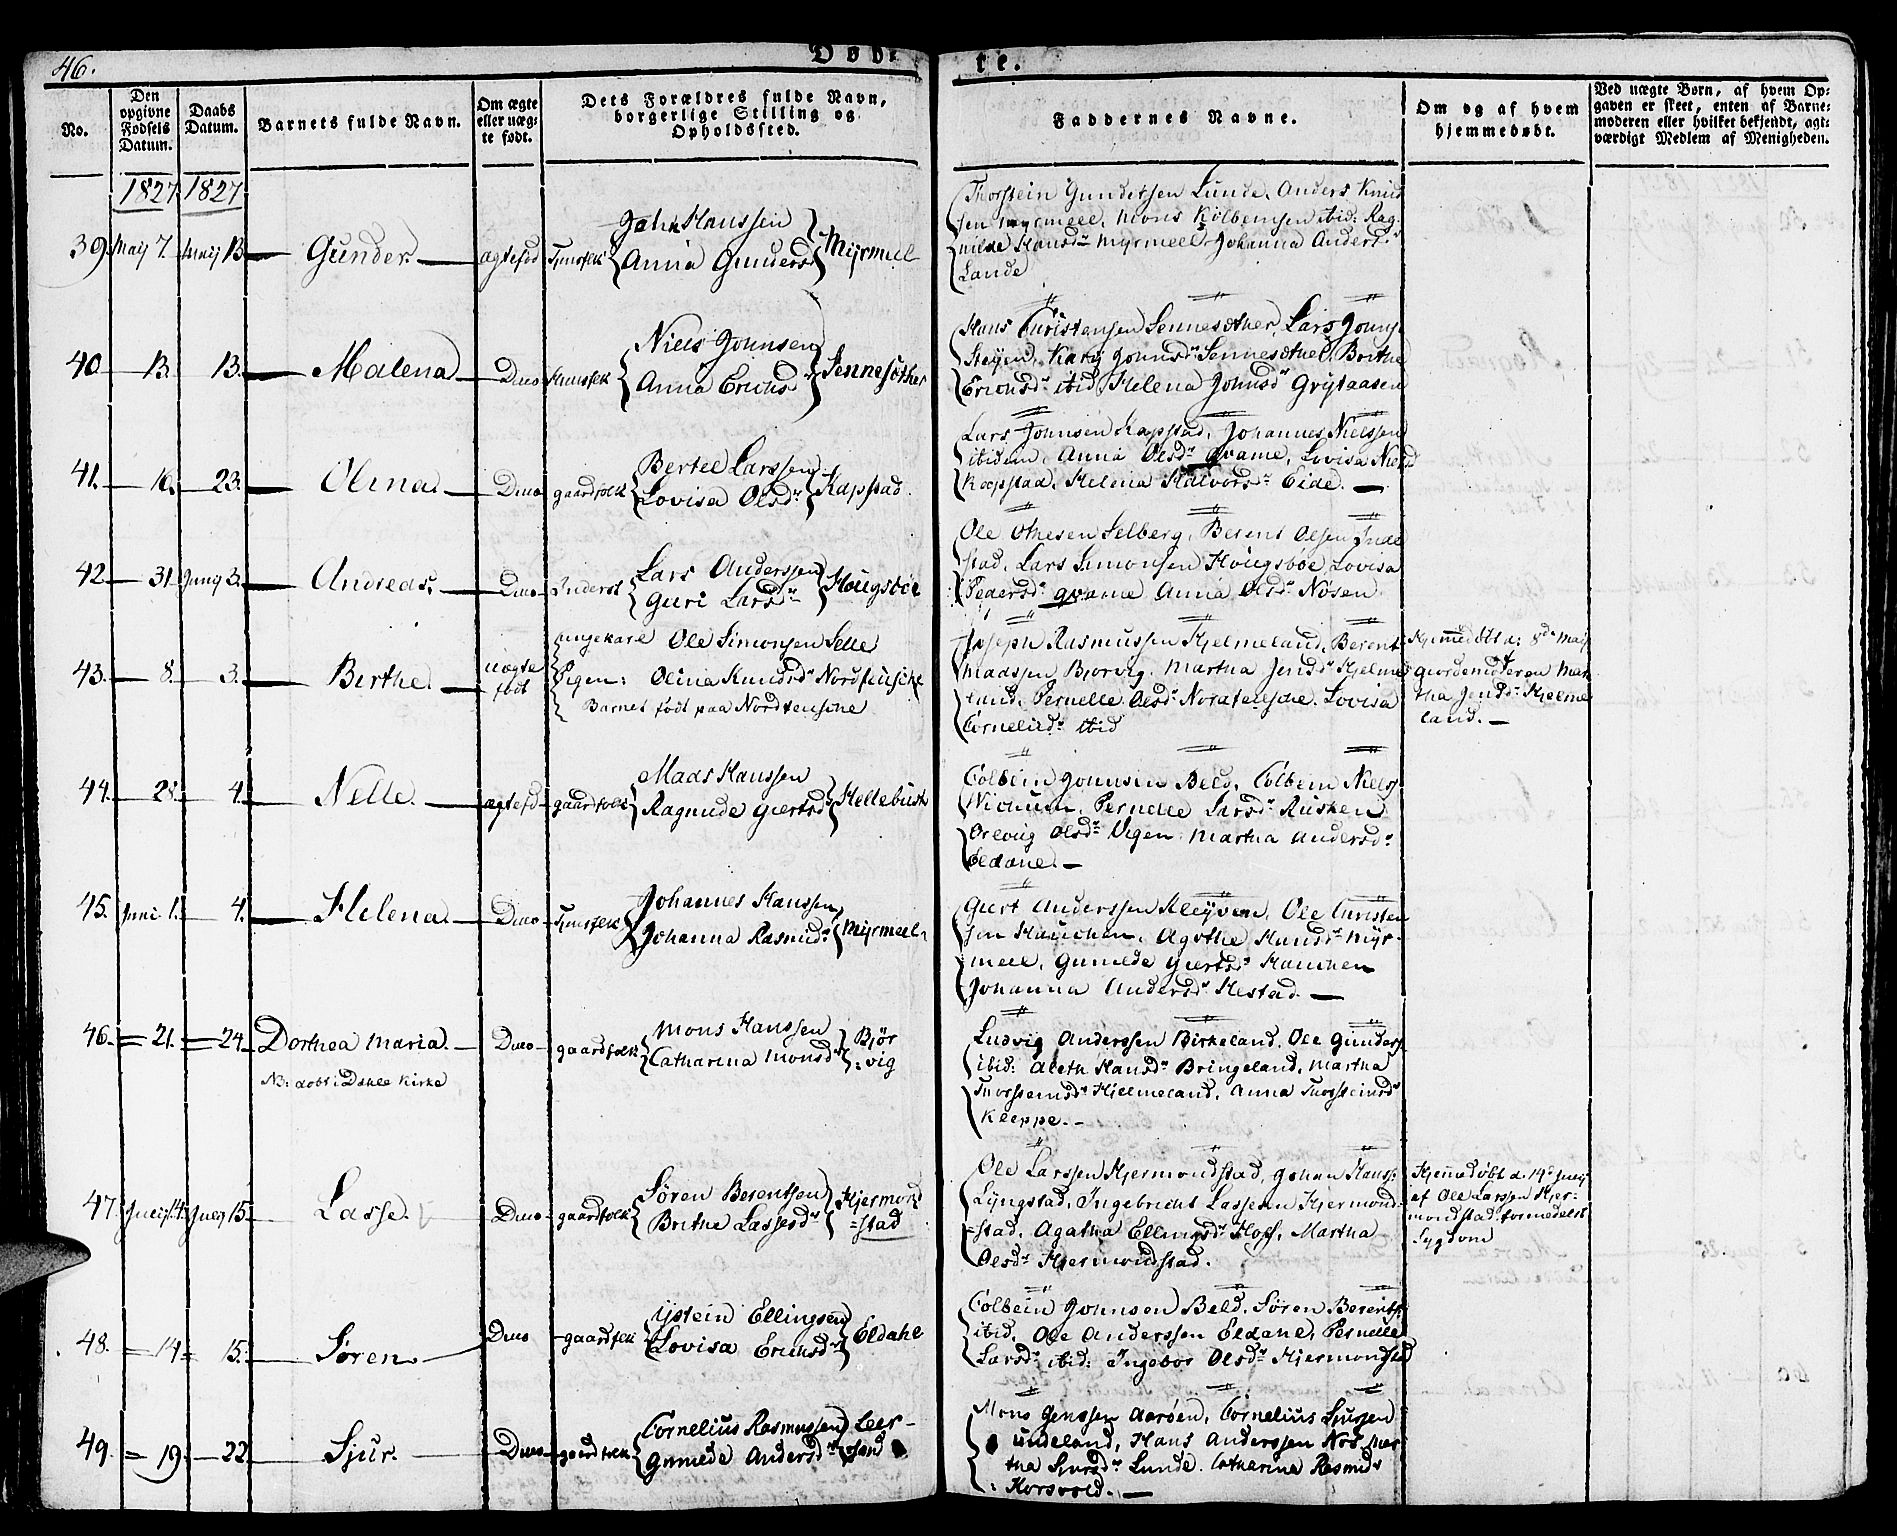 46.
Døbte.
No.
Den opgivne Fødsels Datum.
Daabs Datum.
Barnets fulde Navn.
Om ægte eller uægte født.
Dets Forældres fulde Navn, borgerlige Stilling og Opholdssted.
Faddernes Navne.
Om og af hvem hjemmedøbt.
Ved uægte Børn, af hvem Opgaven er skeet, enten af Barnemoderen eller hvilket bekjendt, agtværdigt Medlem af Menigheden.
1827 1827
39 Maij 7. Maij 13 Gunder. ægtefød
John Hanssen
Anna Gundersd Myrmeel
Thorstein Gundersen Lunde, Anders Knud
sen Myrmeel, Mons Kolbeinsen ibid: Rag
nilde Hansdr Myrmeel, Johanna Andersd
Lande
40 13. 13. Malena Duo Huusfolk
Niels Johnsen
Anna Erichsd Sennesøther
Hans Christensen Sennesøther, Lars Johns
Steyen, Kary Johnsdr Sennesøther, Brithe
Erichsdr ibid, Helena Johnsdr Grytaasen
41. 16. 23. Olina. Duo gaardfolk
Bertel Larssen
Lovisa Olsdr Kapstad.
Lars Johnsen Kapstad, Johannes Nielssen
ibidem, Anna Olsdr Qvame, Lovisa Nielsd
Kopstad, Helena Halvorsdr Eide.
42 31. Juny 3. Andreas. Duo Inderst
Lars Anderssen
Guri Larsdr Hougsbøe
Ole Othesen Selberg, Berent Olsen Inde
stad, Lars Simonsen Hougsbøe, Lovisa
Pedersdr Qvame Anna Olsdr Nøsen
43. 8. 3. Birthe. uægte født
ungekarl Ole Simonsen Selle
Pigen: Olina Knudsdr Nordtensche
Barnet født paa Nordtensche
Joseph Rasmussen Hjelmeland, Berent
Madssen Bjorvig, Martha Jensdr Hjelme
land, Pernelle Olsdr Nordtensche, Lovisa
Cornelidr ibid
Hjemmedøbt d: 8de Maij
Giordemoderen Mar
tha Jensdr Hjelme
land.
44. 28. 4. Nelle. ægtefd gaardfolk
Mads Hanssen
Ragnilde Giertsd Hellebust
Colbein Johnsen Beld, Colbein Niels
Pernelle Larsdr Rusken
Olsdr Vigen, Martha Andersdr
Eldane.
45. Juni 1. 4. Helena. Duo Huusfolk
Johannes Hanssen
Johanna Rasmusdr Myrmeel
Giert Anderssen Kleyven, Ole Christen
sen Hauchen, Agothe Hansdr Myr-
meel, Gunilde Giertsdr Hauchen
Johanna Andersdr Hestad.
46. 21. 24. Dorthea Maria. Duo gaardfolk
NB: døbt i Dahle Kirke
Mons Hanssen
Catharina Monsdr Bjør
vig
Ludvig Anderssen Birkeland, Ole Gunders
ibid: Aleth Hansdr Bringeland, Martha
Thorsteinsdr Hjelmeland, Anna Thorsteinsd
Kleppe.
47. Juny 14. July 15. Lasse. Duo gaardfolk
Søren Berentsen
Brithe Lassesdr Hjermond
stad
Ole Larssen Hjermondstad, Johan Hanss
Lyngstad, Ingebricht Lassesen Hjermond
stad, Agatha Ellingsdr Hoff, Martha
Olsdr Hjermondstad.
Hjemmedøbt d. 14de Juny
af Ole Larssen Hjer-
mondstad formedelst
Sygdom
48. 14 15. Søren. Duo gaardfolk
Ystein Ellingsen
Lovisa Erichsdr Eldahl
Colbein Johnsen Beld, Søren Berents
ibid, Ole Anderssen Eldane, Pernelle
Larsdr ibid: Ingebor Olsdr Hjermondstad
49. 19. 22 Sjur. Duo gaardfolk
Cornelius Rasmussen Leer-
Gunilde Andersdr sand
Mons Jenssen Aarøen, Cornelius Sjursen
Hans Anderssen Mar
tha Sjursdr Lunde, Catharina Rasmusd
Korsvold.